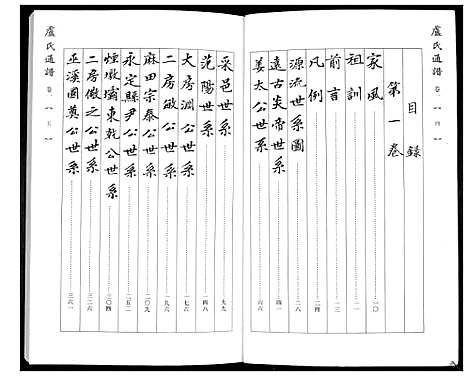 盧氏通譜 卷一 四
目錄
第一卷
家風 一〇
祖訓 一一
前言 一三
凡例 二四
源流世系圖 二八
遠古炎帝世系 四一
姜太公世系 六六
采邑世系 九九
范陽世系 一四八
大房淵公世系 一七六
二房敏公世系 一八七
麻田宗泰公世系 二〇九
永定縣尹公世系 二五二
煙墩壩東乾公世系 三〇四
二房徵之公世系 三二六
巫溪國奠公世系 三六一
盧氏通譜 卷一 五